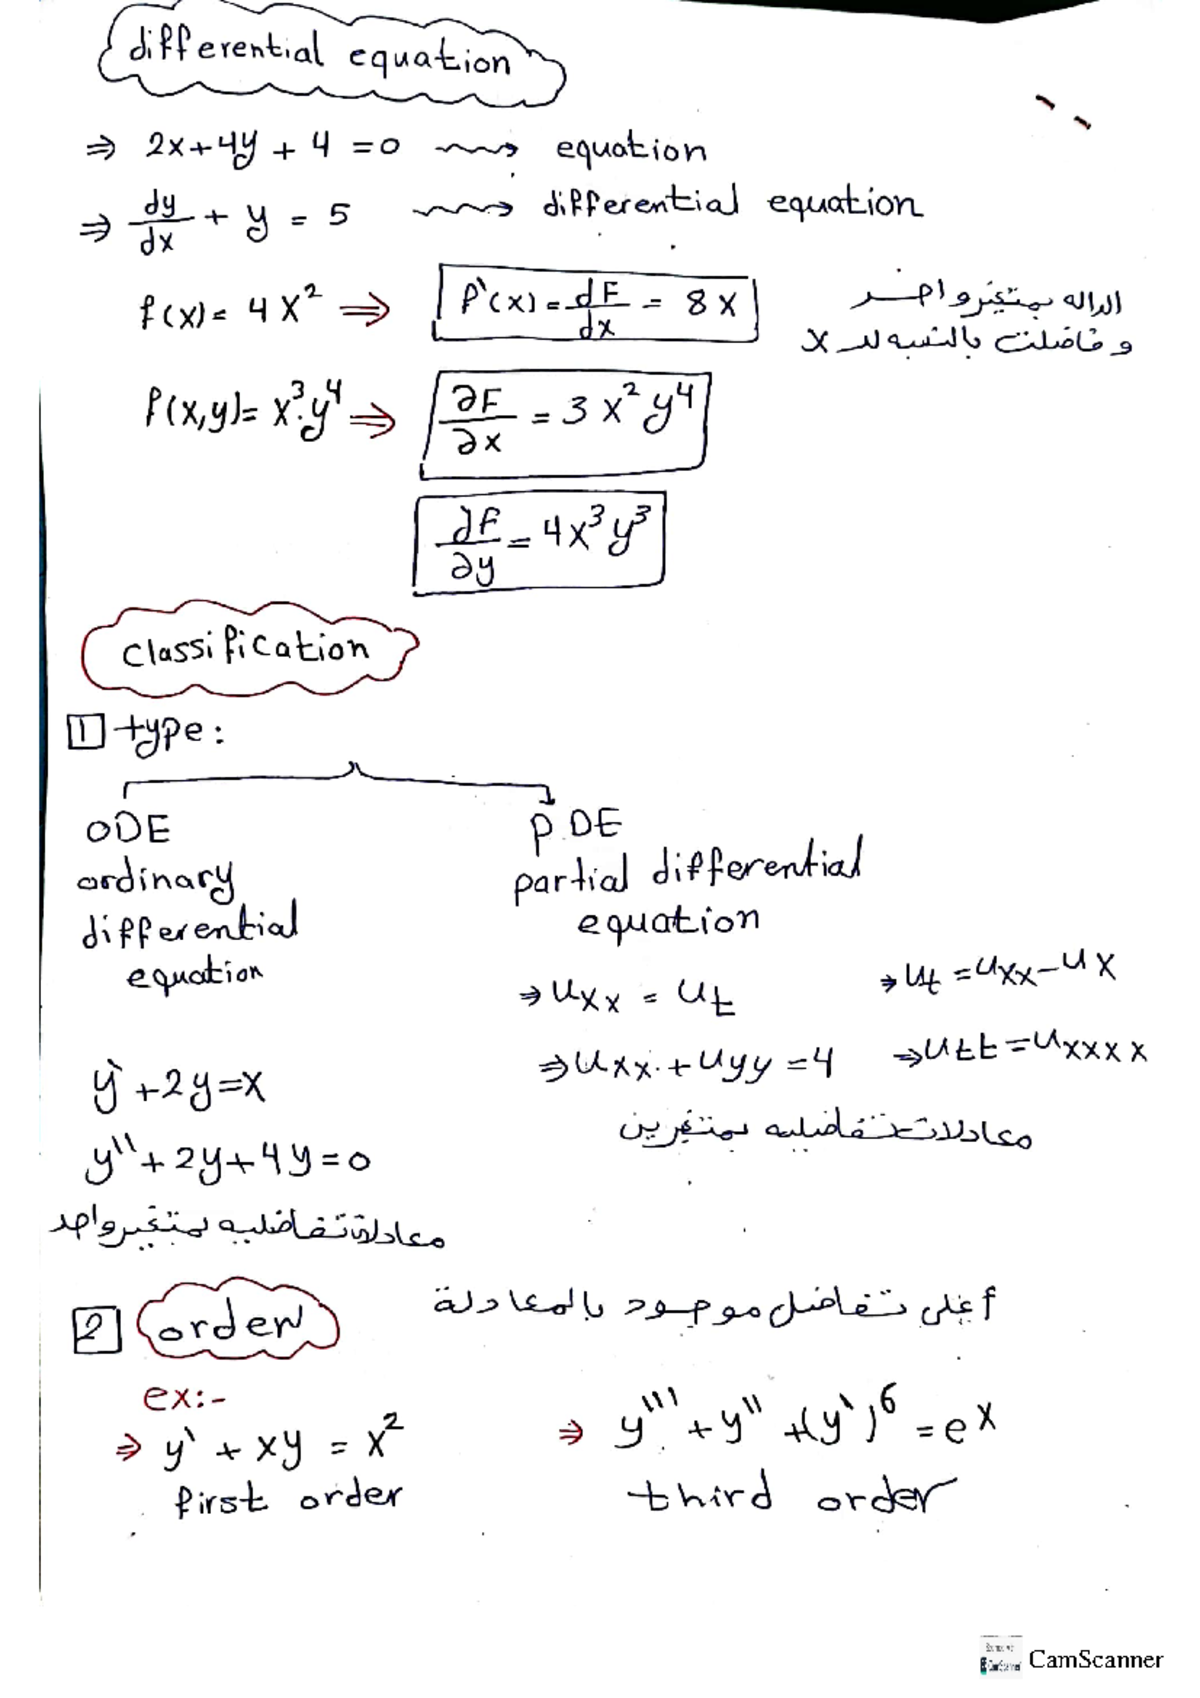 differential equation
⇒ 2x+4y+4=0 ⟿ equation
⇒ dy/dx + y = 5 ⟿ differential equation
f(x)= 4x² ⇒ f`(x)= dF/dx = 8x
الداله بمتغير واحد
و فاضلت بالنسبه لـ x
f(x,y)= x³.y⁴ ⇒ ∂F/∂x = 3x²y⁴
∂f/∂y = 4x³y³
Classification
1 type:
ODE
ordinary
differential
equation
y` +2y=x
y'' + 2y+4y=0
معادلة تفاضليه بمتغير واحد
P.DE
partial differential
equation
⇒ uxx = ut
⇒ ut = uxx - ux
⇒ uxx + uyy = 4
⇒ utt = uxxxx
معادلات تفاضليه بمتغرين
2 order
أعلى تفاضل موجود بالمعادلة
ex:-
⇒ y` + xy = x²
first order
⇒ y''' + y'' +(y`)⁶ = eˣ
third order
CamScanner